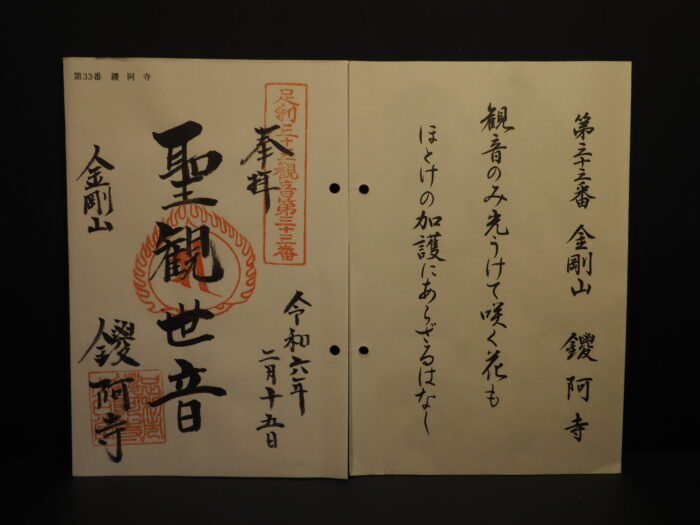 第三十三番 金剛山 鑁阿寺
観音のみ光うけて咲く花も
ほとけの加護にあらざるはなし
第33番 鑁阿寺
足利三十三觀音第三十三番
奉拝
令和六年
二月十五日
聖観世音
金剛山
鑁阿寺